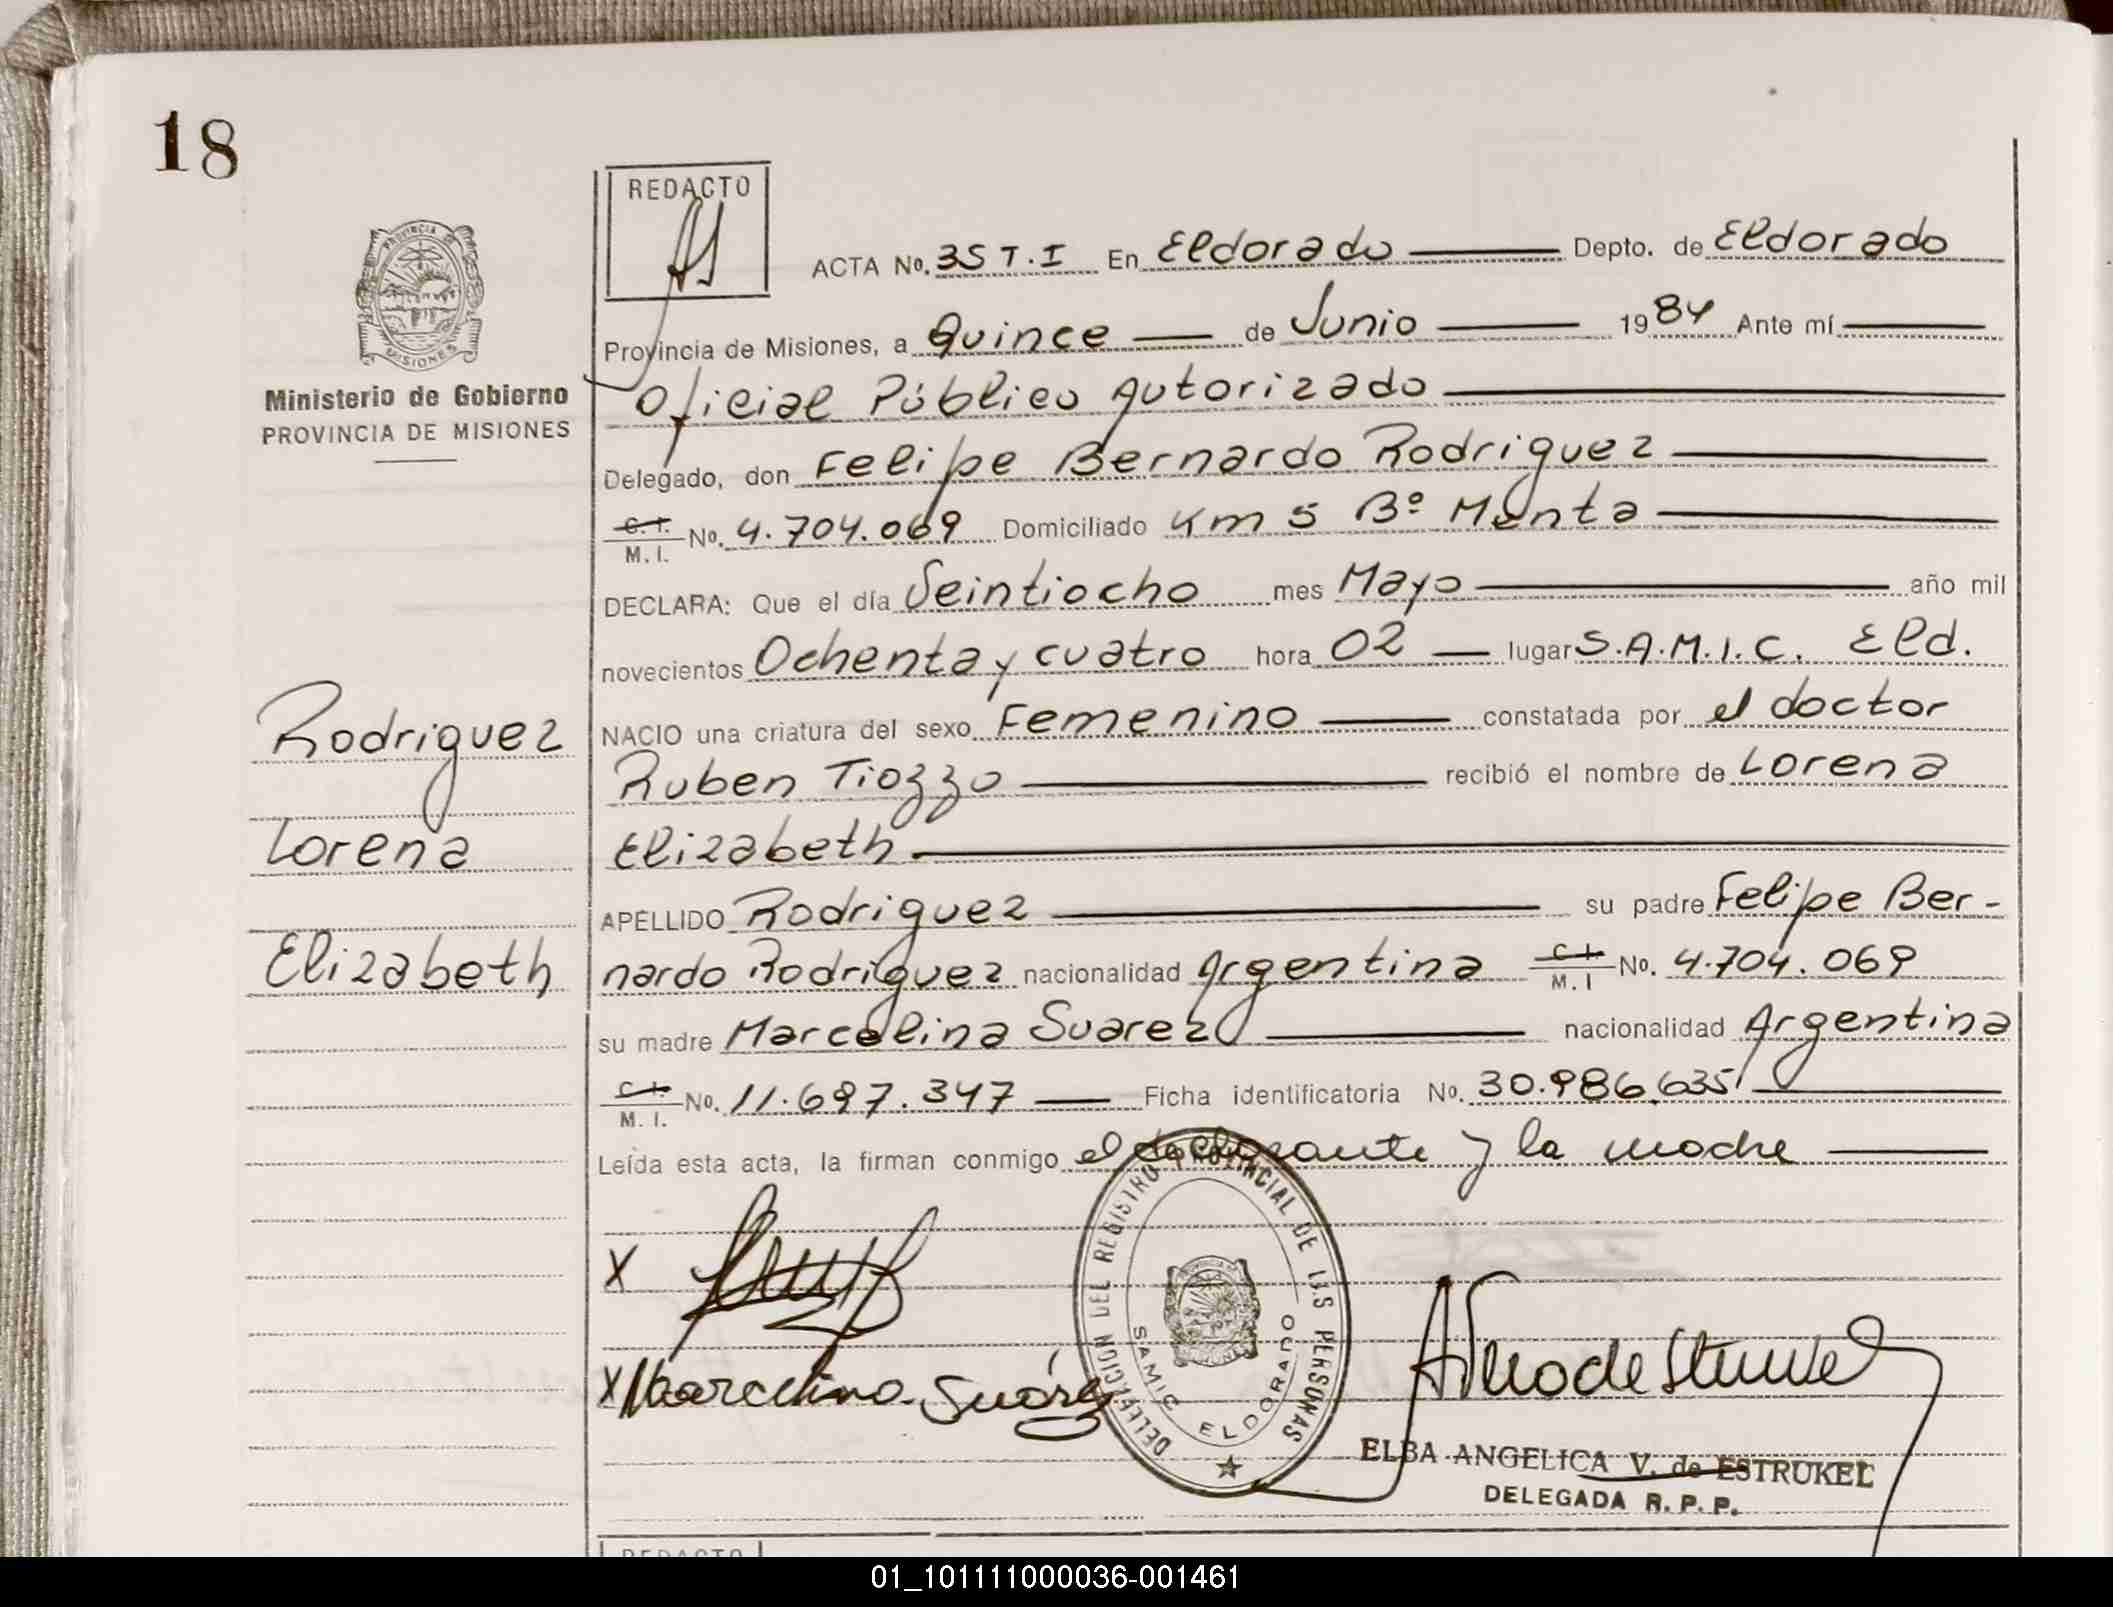 18
REDACTO
PROVINCIA DE
MISIONES
Ministerio de Gobierno
PROVINCIA DE MISIONES
ACTA No. 35 T.I En Eldorado Depto. de Eldorado
Provincia de Misiones, a Quince de Junio 1984 Ante mí
Oficial Público Autorizado
Delegado, don Felipe Bernardo Rodriguez
C.I. M.I. No. 4.704.069 Domiciliado Km 5 Bº Manta
DECLARA: Que el día Veintiocho mes Mayo año mil
novecientos Ochenta y cuatro hora 02 lugar S.A.M.I.C. Eld.
NACIO una criatura del sexo Femenino constatada por el doctor
Ruben Tiozzo recibió el nombre de Lorena
Elizabeth
APELLIDO Rodriguez su padre Felipe Ber-
nardo Rodriguez nacionalidad Argentina C.I. M.I No. 4.704.069
su madre Marcelina Suarez nacionalidad Argentina
C.I. M.I. No. 11.697.347 Ficha identificatoria No. 30.986.635
Leída esta acta, la firman conmigo el declarante y la madre
Rodriguez
Lorena
Elizabeth
X
X Marcelina Suárez
DELEGACION DEL REGISTRO PROVINCIAL DE LAS PERSONAS
SAMIC ELDORADO
ELBA ANGELICA V. de ESTRUKEL
DELEGADA R. P. P.
REDACTO
01_101111000036-001461